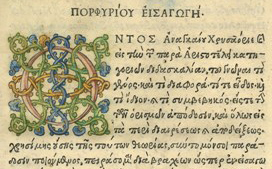 ΠΟΡΦΥΡΙΟΥ ΕΙΣΑΓΩΓΗ.
ΝΤΟΣ Ἀναγκαίου Χρυσαόριε καὶ
εἰς τὴν τῶν παρὰ Ἀριστοτέλει κατη
γοριῶν διδασκαλίαν, τοῦ γνῶναι τί
γένος· καὶ τί διαφορὰ· τί τε εἶδος· καὶ
τί ἴδιον· καὶ τί συμβεβηκός, εἴς τε τὴν
τῶν ὁρισμῶν ἀπόδοσιν, καὶ ὅλως εἰς
τὰ περὶ διαιρέσεως καὶ ἀποδείξεως
χρησίμης οὔσης τῆς τούτων θεωρίας, σύντομόν σοι παρά
δοσιν ποιούμενος, πειράσομαι διὰ βραχέων ὥσπερ ἐν εἰσαγω